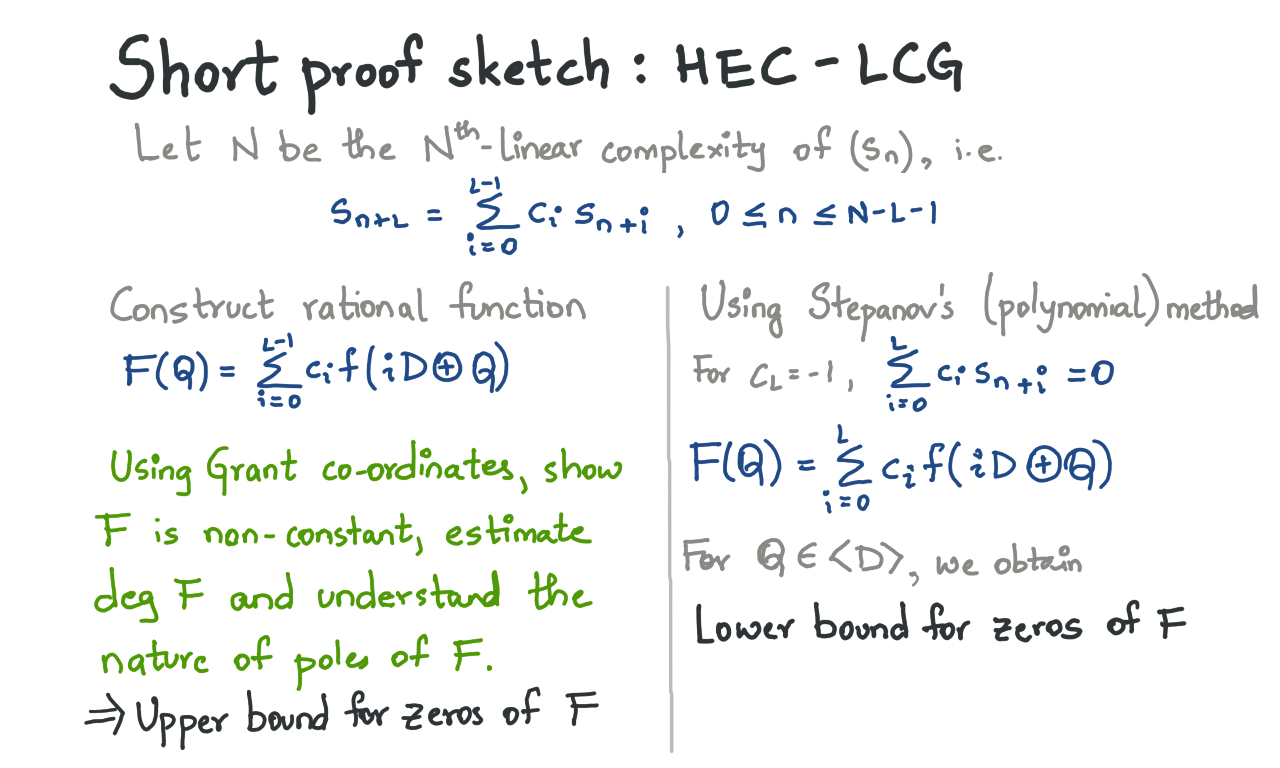 Short proof sketch : HEC - LCG
Let N be the Nᵗʰ-linear complexity of (Sₙ), i.e.
Sₙ₊L = ∑_{i=0}^{L-1} cᵢ Sₙ₊ᵢ , 0 ≤ n ≤ N-L-1
Construct rational function
F(Q) = ∑_{i=0}^{L-1} cᵢ f(iD ⊕ Q)
Using Grant co-ordinates, show
F is non-constant, estimate
deg F and understand the
nature of poles of F.
⇒ Upper bound for zeros of F
Using Stepanov's (polynomial) method
For C_L = -1, ∑_{i=0}^{L} cᵢ Sₙ₊ᵢ = 0
F(Q) = ∑_{i=0}^{L} cᵢ f(iD ⊕ Q)
For Q ∈ <D>, we obtain
Lower bound for zeros of F